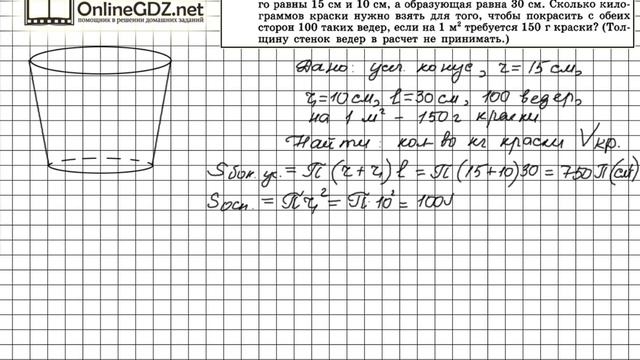 OnlineGDZ.net
помощник в решении домашних заданий
го равны 15 см и 10 см, а образующая равна 30 см. Сколько кило-
граммов краски нужно взять для того, чтобы покрасить с обеих
сторон 100 таких ведер, если на 1 м² требуется 150 г краски? (Тол-
щину стенок ведер в расчет не принимать.)
Дано: усл конус, r = 15 см,
r₁=10 см, l=30 см, 100 ведер,
на 1 м² - 150 г краски
Найти: кол-во кг краски Vкр.
Sбок. ус. = П (r + r₁) l = П (15+10)30 = 750П (см²)
Sосн. = П r₁² = П·10² = 100П